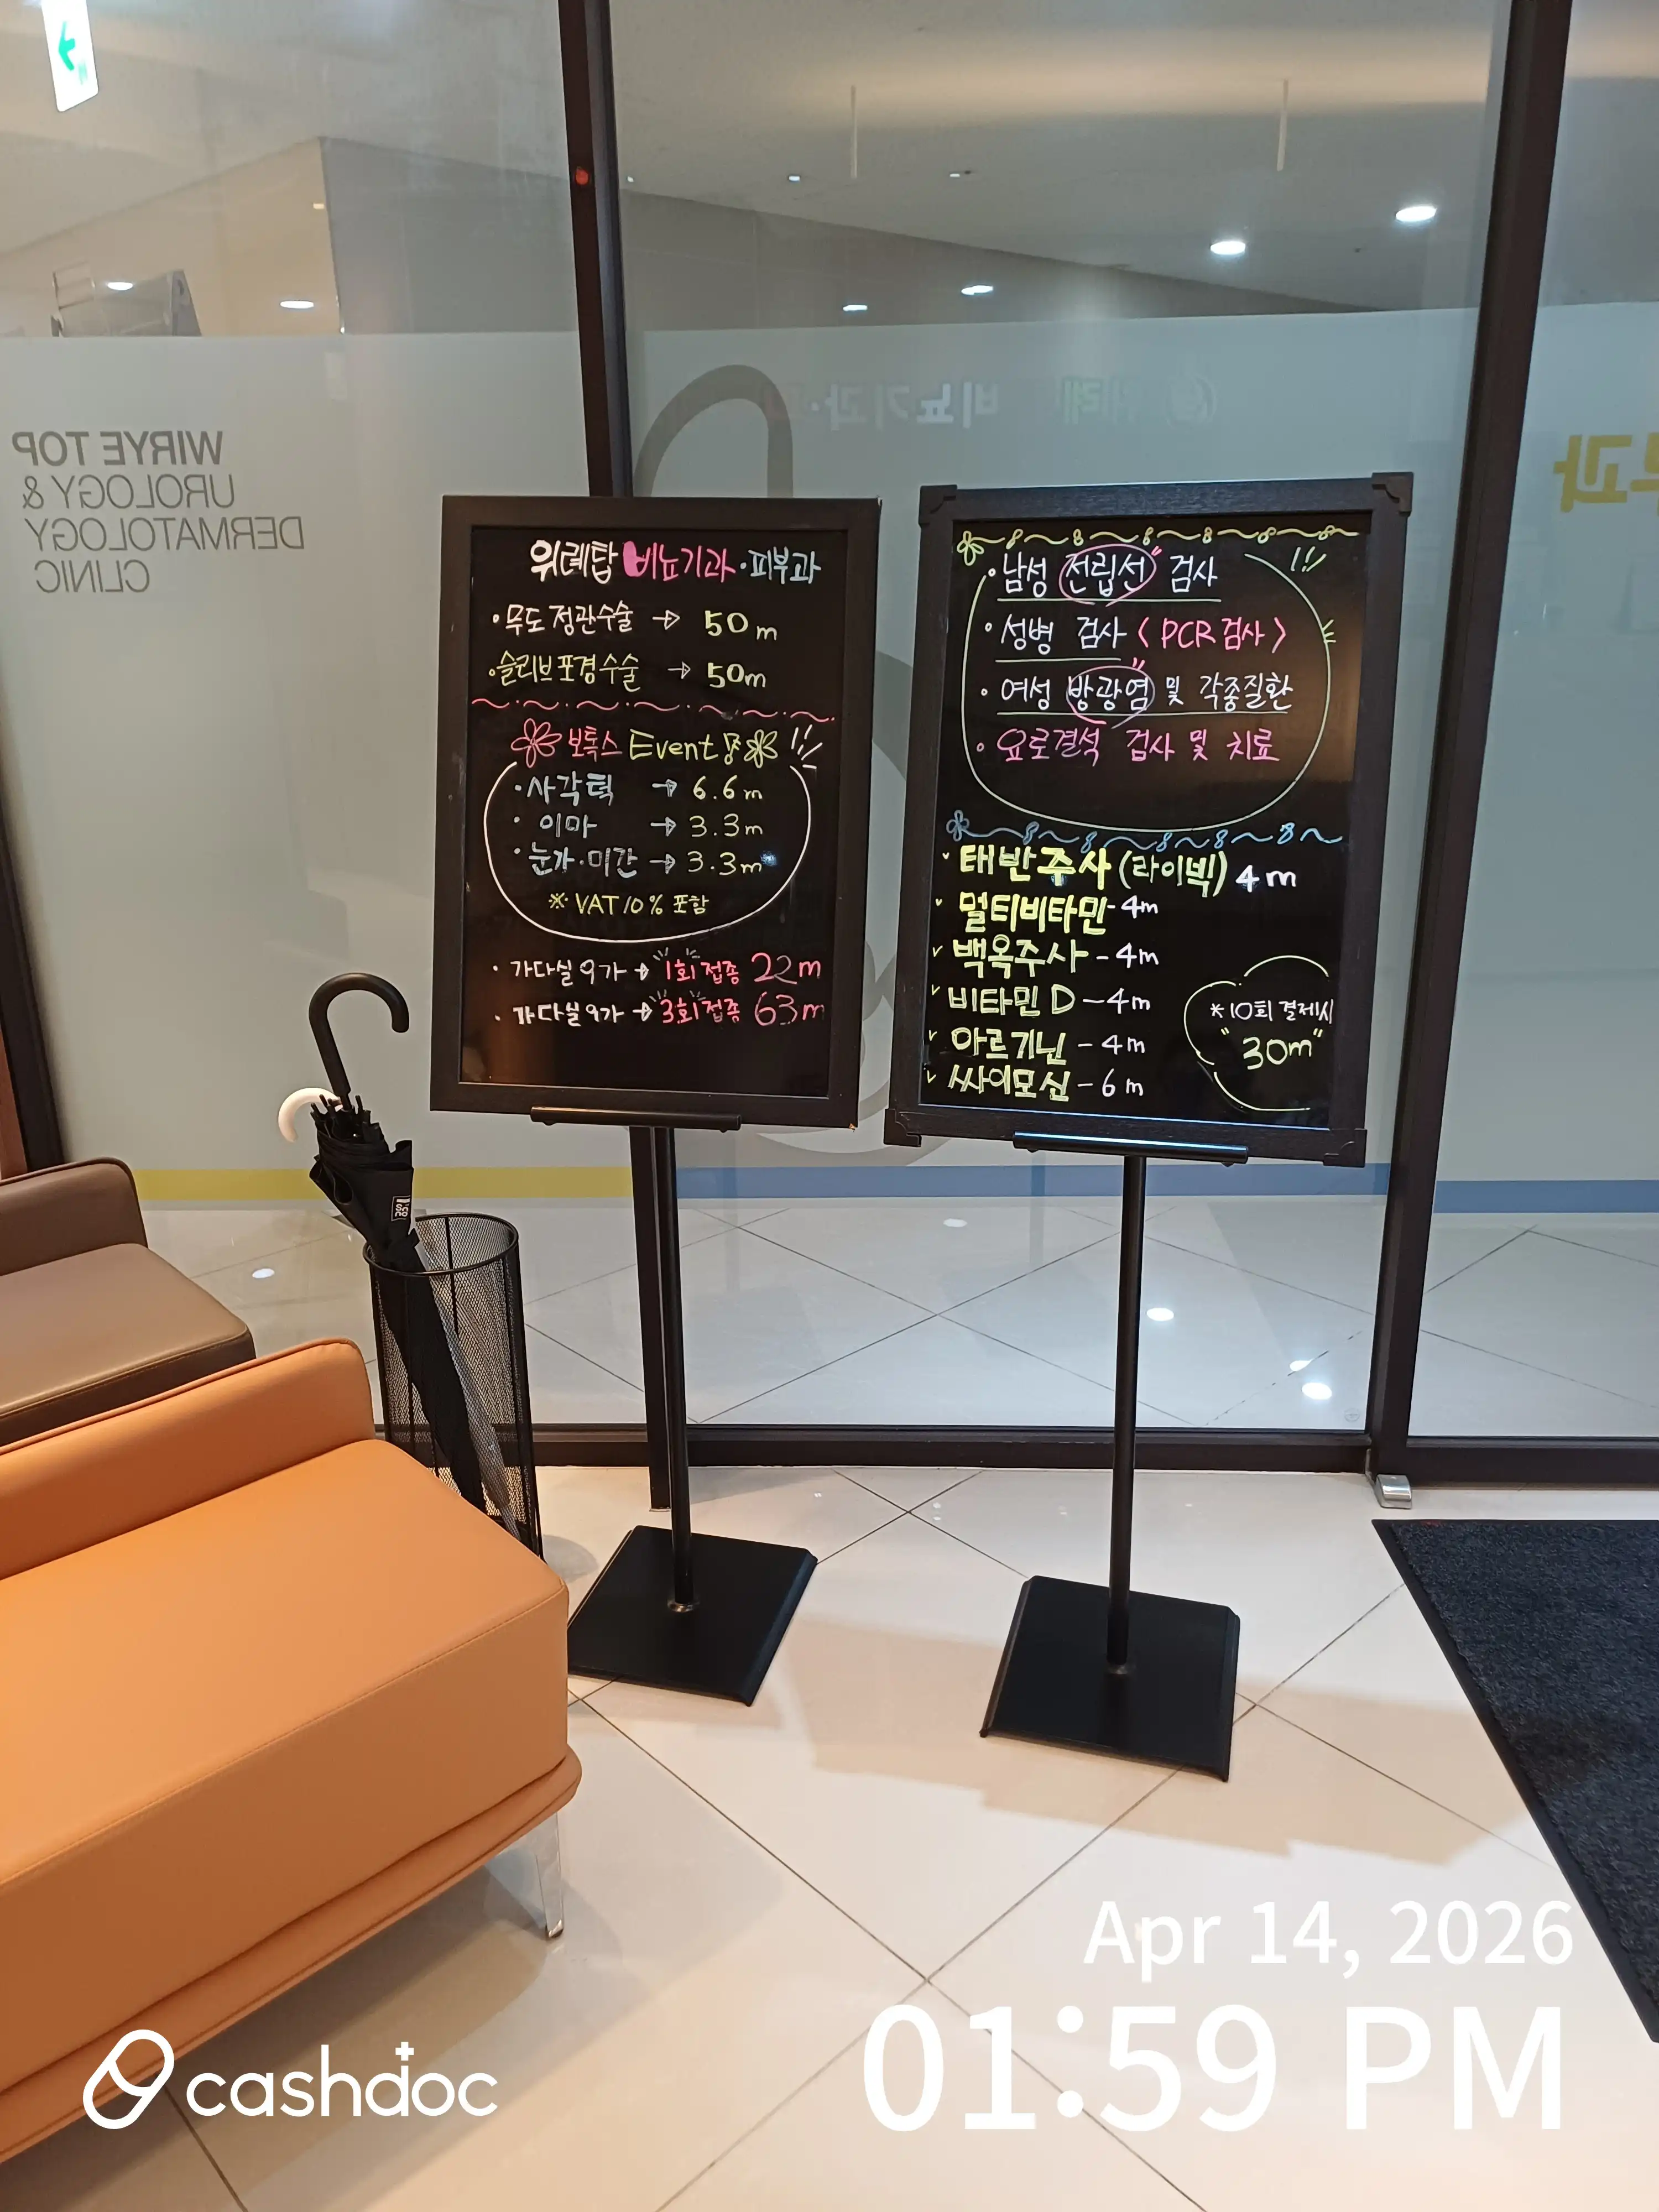 WIRYE TOP
UROLOGY &
DERMATOLOGY
CLINIC
위례 비뇨기과·
위례탑 비뇨기과·피부과
·무도정관수술 → 50m
·슬리브포경수술 → 50m
보톡스 Event 중 !!
·사각턱 → 6.6m
·이마 → 3.3m
·눈가·미간 → 3.3m
※ VAT 10% 포함
·가다실 9가 → 1회 접종 22m
·가다실 9가 → 3회 접종 63m
·남성 전립선 검사 !!
·성병 검사 < PCR 검사 >
·여성 방광염 및 각종질환
·요로결석 검사 및 치료
태반주사 (라이넥) 4m
멀티비타민 - 4m
백옥주사 - 4m
비타민 D - 4m
아르기닌 - 4m
싸이모신 - 6m
*10회 결제시
"30m"
Apr 14, 2026
01:59 PM
cashdoc